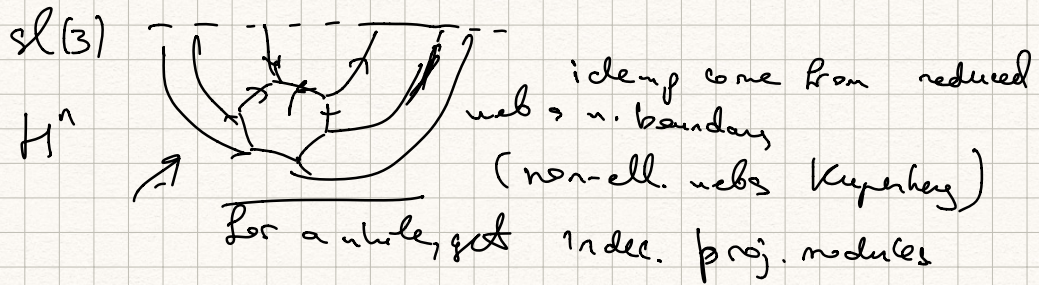 sl(3)
H^n
idemp come from reduced
webs n. boundary
(non-ell. webs Kuperberg)
for a while, get indec. proj. modules